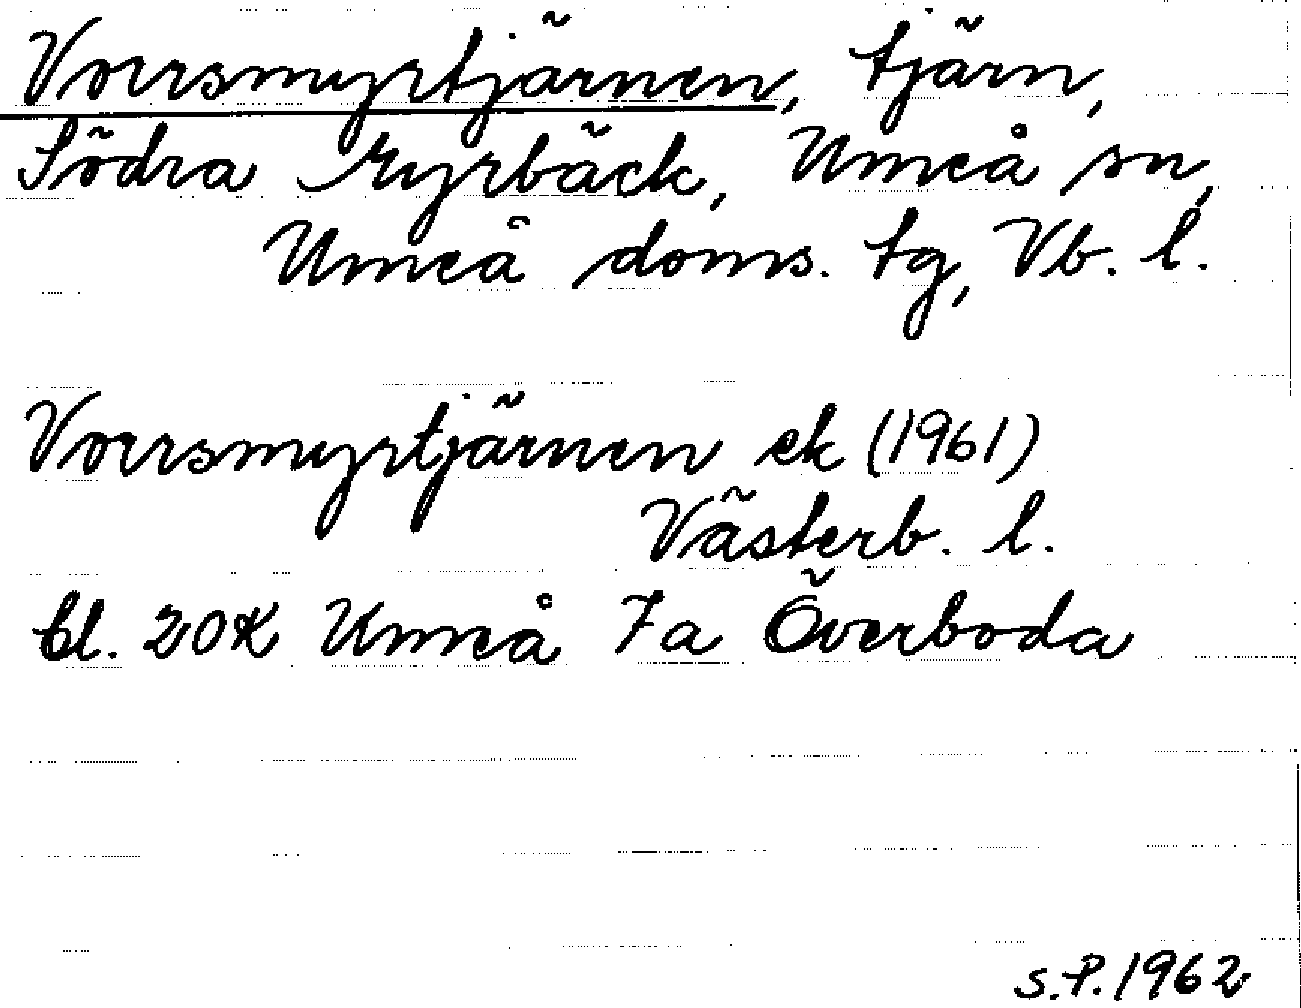 Vorrsmyrtjärnen, tjärn,
Södra Myrbäck, Umeå sn,
Umeå doms. tg, Vb. l.
Vorrsmyrtjärnen ek (1961)
Västerb. l.
bl. 20K Umeå 7a Överboda
S.P. 1962